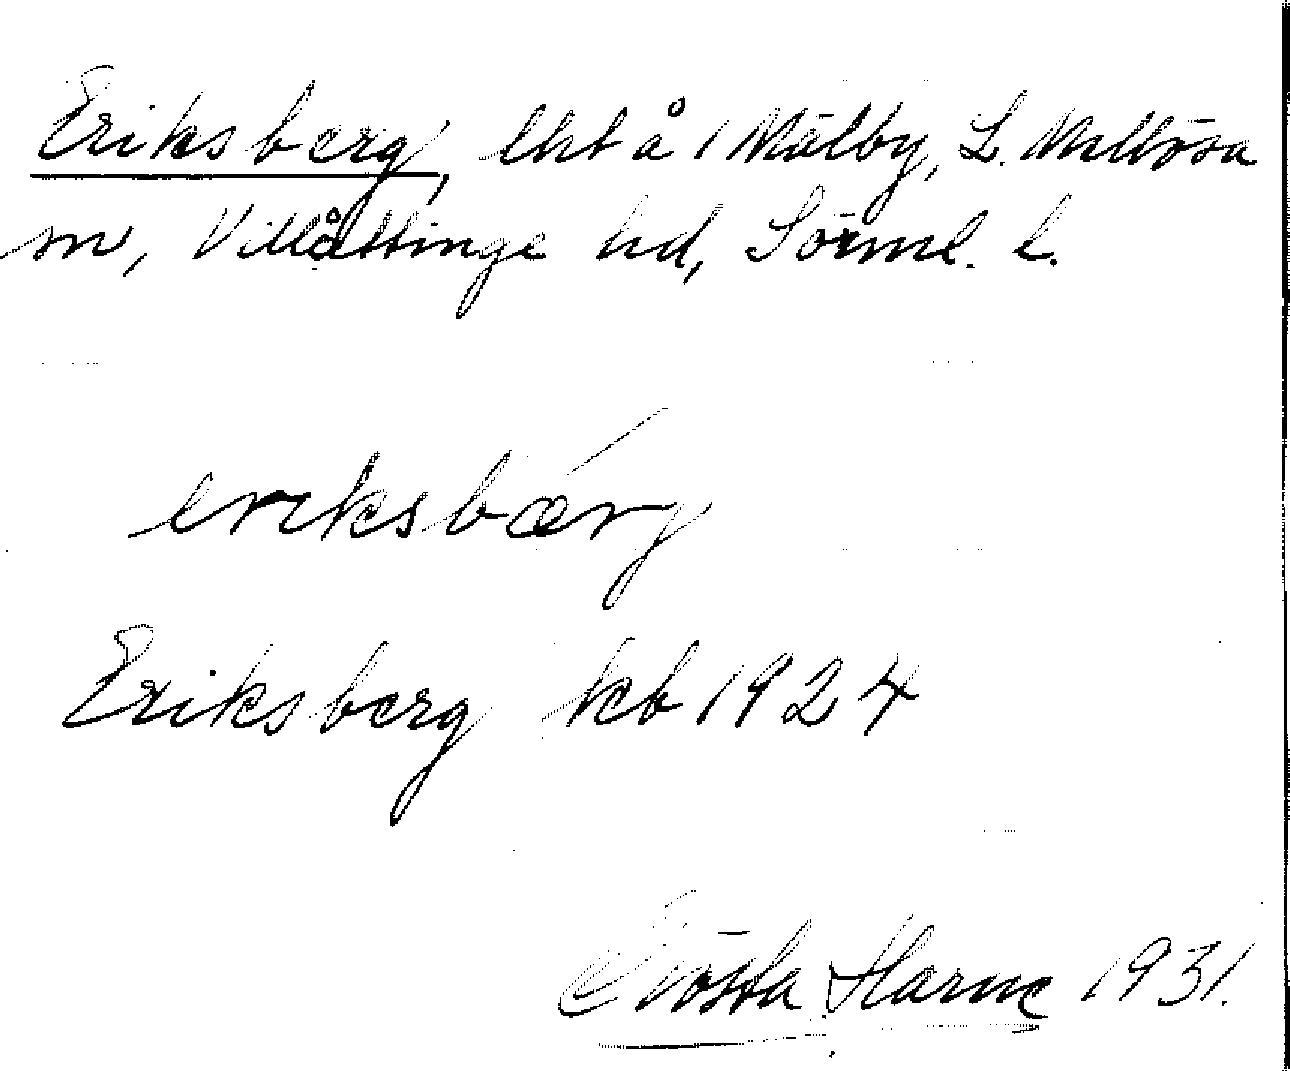 Eriksberg, lht å 1 Mälby, L. Mellösa
sn, Villåttinge hd, Sörml. l.
eriksbærg
Eriksberg kb 1924
Gösta Harne 1931.